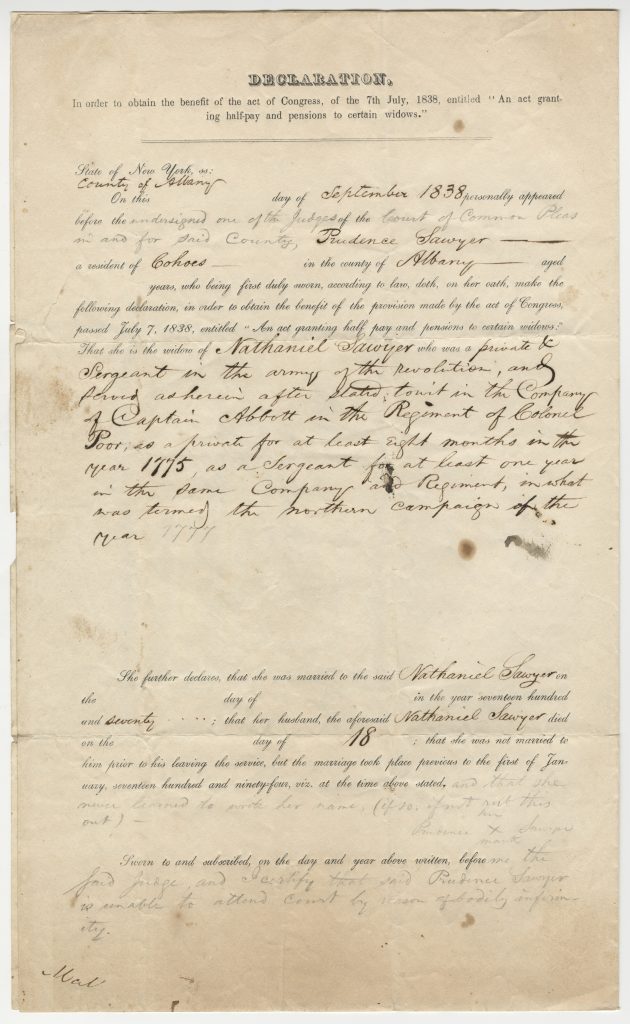 DECLARATION,
In order to obtain the benefit of the act of Congress, of the 7th July, 1838, entitled "An act grant-
ing half-pay and pensions to certain widows."
State of New York, ss:
County of Albany
On this day of September 1838 personally appeared
before the undersigned one of the Judges of the Court of Common Pleas
in and for said County, Prudence Sawyer
a resident of Cohoes in the county of Albany aged
years, who being first duly sworn, according to law, doth, on her oath, make the
following declaration, in order to obtain the benefit of the provision made by the act of Congress,
passed July 7, 1838, entitled "An act granting half pay and pensions to certain widows:"
That she is the widow of Nathaniel Sawyer who was a private &
Sergeant in the army of the revolution, and
served as herein after stated; towit in the Company
of Captain Abbott in the Regiment of Colonel
Poor, as a private for at least eight months in the
year 1775, as a Sergeant for at least one year
in the same Company and Regiment, in what
was termed the northern campaign of the
year 1777
She further declares, that she was married to the said Nathaniel Sawyer on
the day of in the year seventeen hundred
and seventy ....; that her husband, the aforesaid Nathaniel Sawyer died
on the day of 18 ; that she was not married to
him prior to his leaving the service, but the marriage took place previous to the first of Jan-
uary, seventeen hundred and ninety-four, viz. at the time above stated, and that she
never learned to write her name, (if so; if not this
out) —
her
Prudence X Sawyer
mark
Sworn to and subscribed, on the day and year above written, before me the
said Judge, and I certify that said Prudence Sawyer
is unable to attend Court by reason of bodily infirm-
ity.